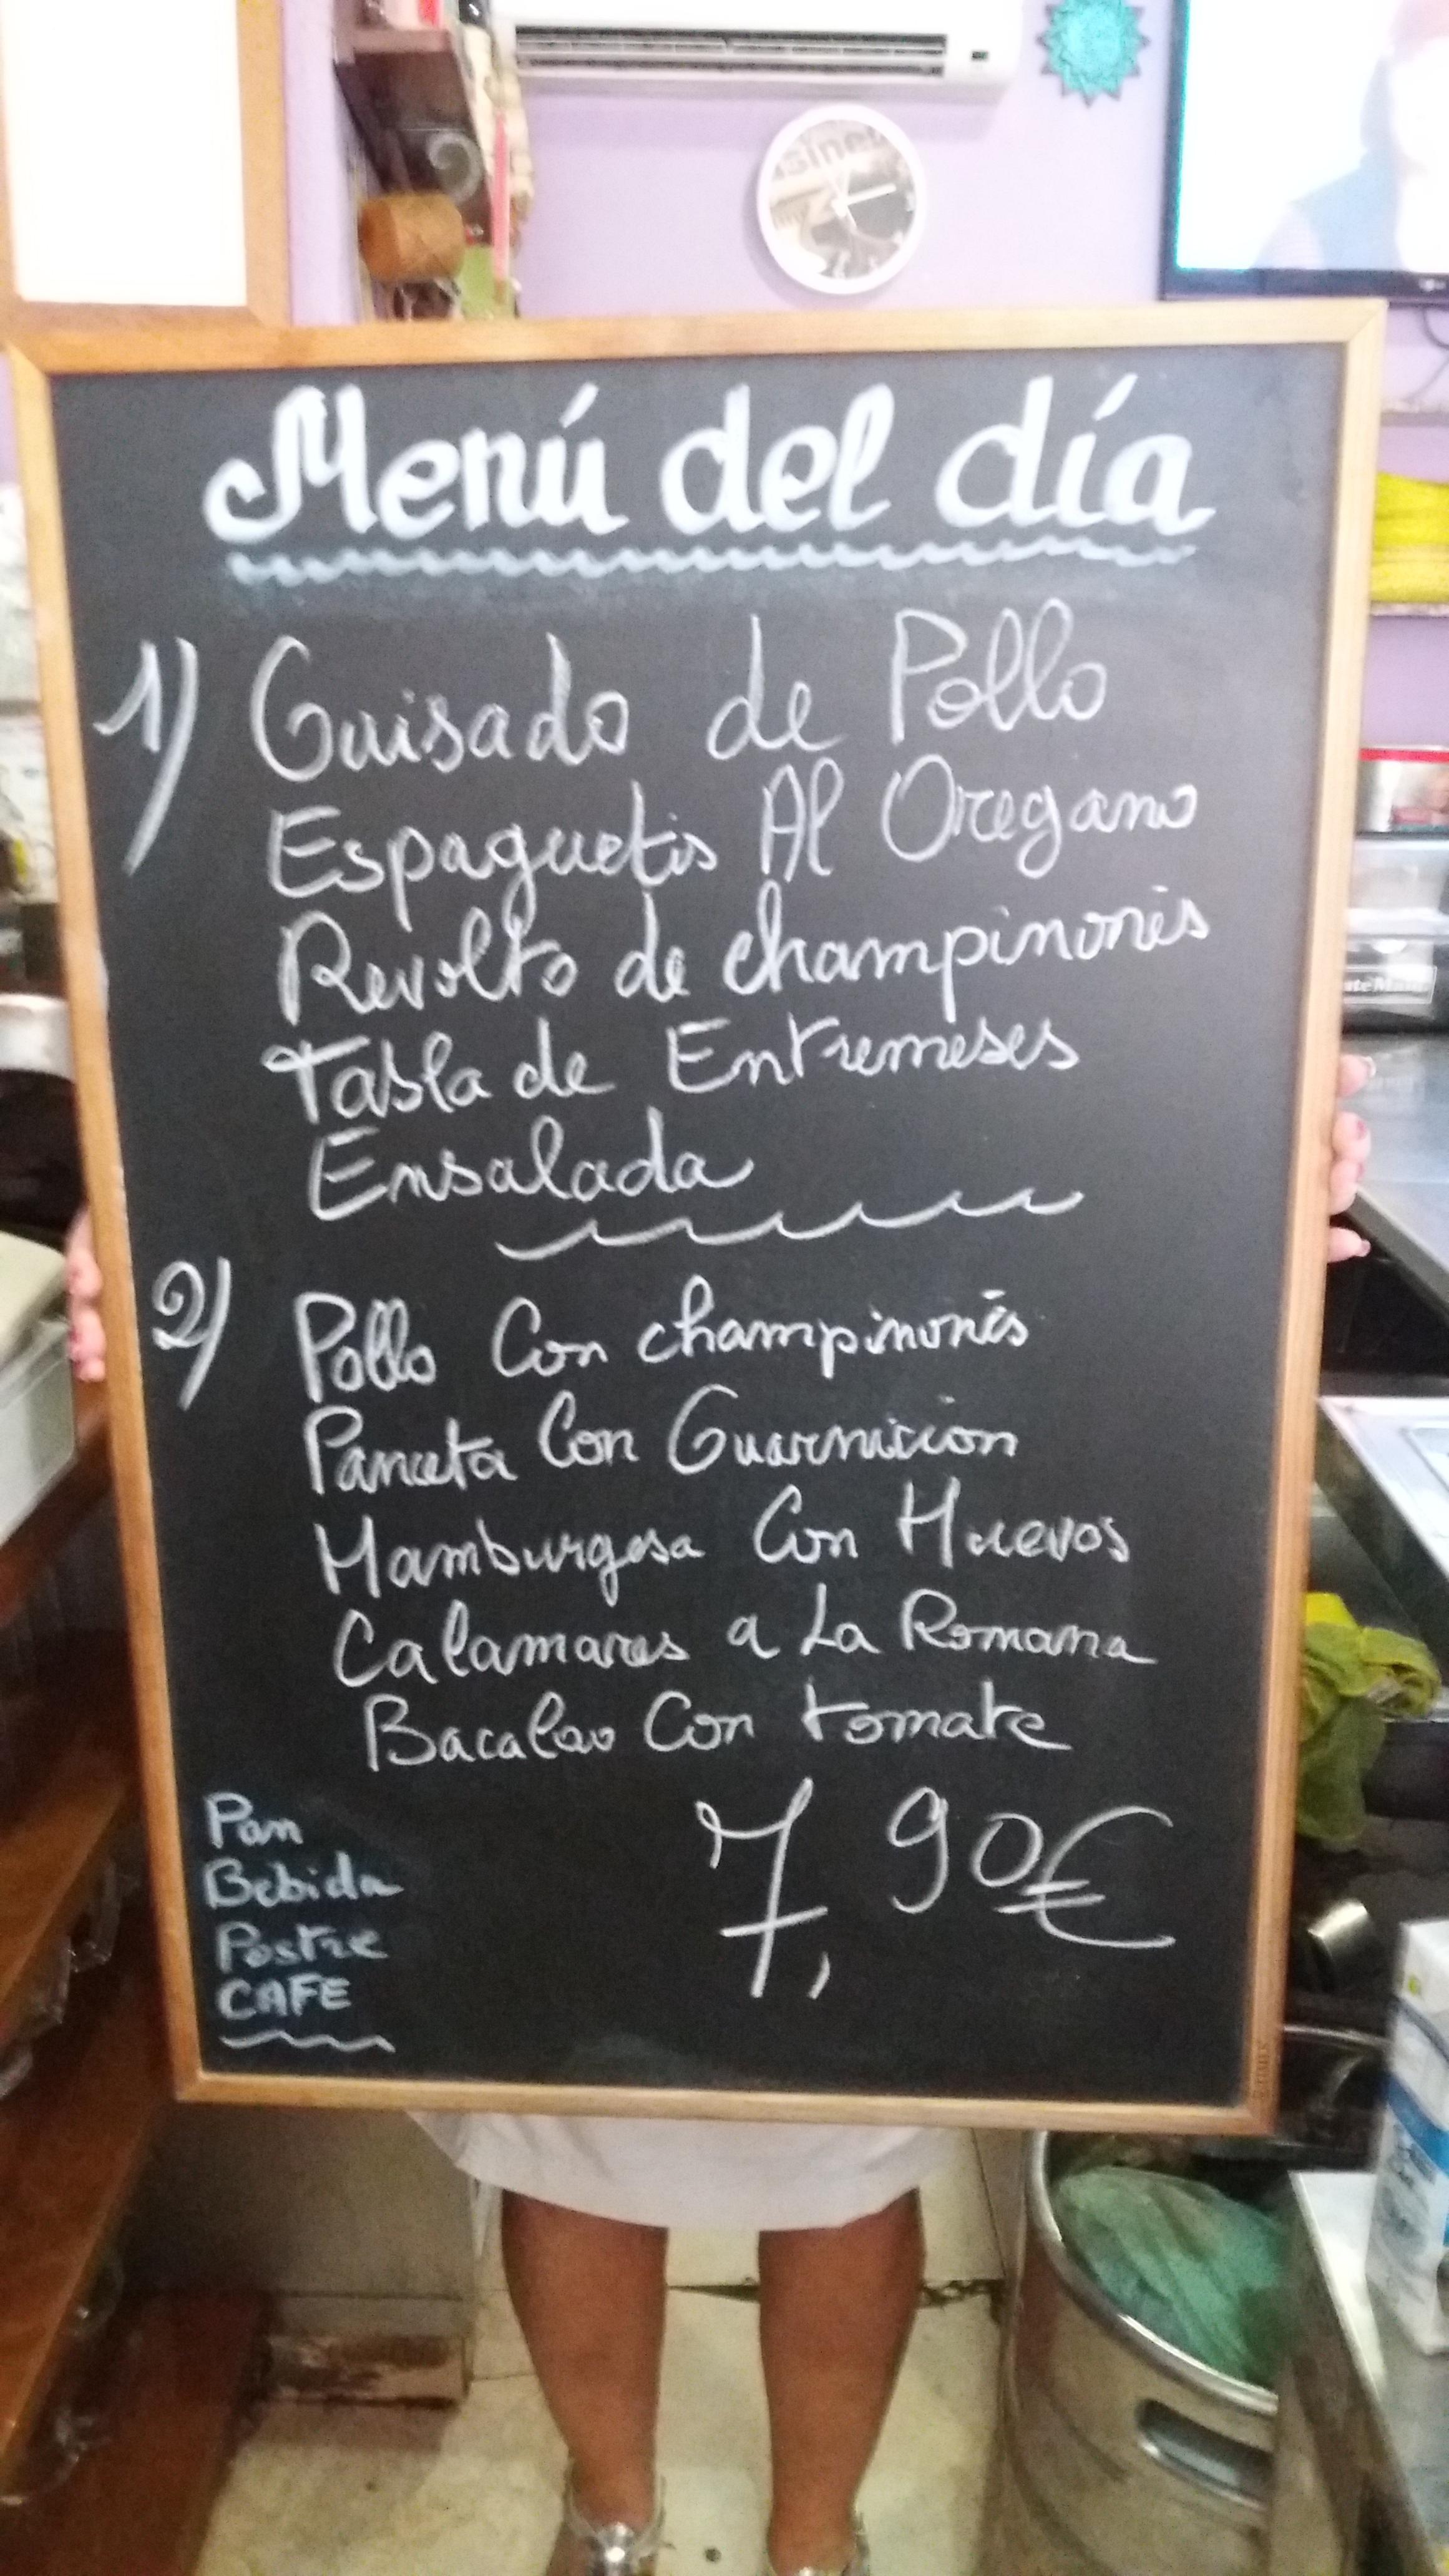 Menú del día
1) Guisado de Pollo
Espaguetis Al Oregano
Revolto de champinones
Tabla de Entremeses
Ensalada
2) Pollo Con champinones
Panceta Con Guarnicion
Hamburgesa Con Huevos
Calamares a La Romana
Bacalao Con tomate
7,90€
Pan
Bebida
Postre
CAFE